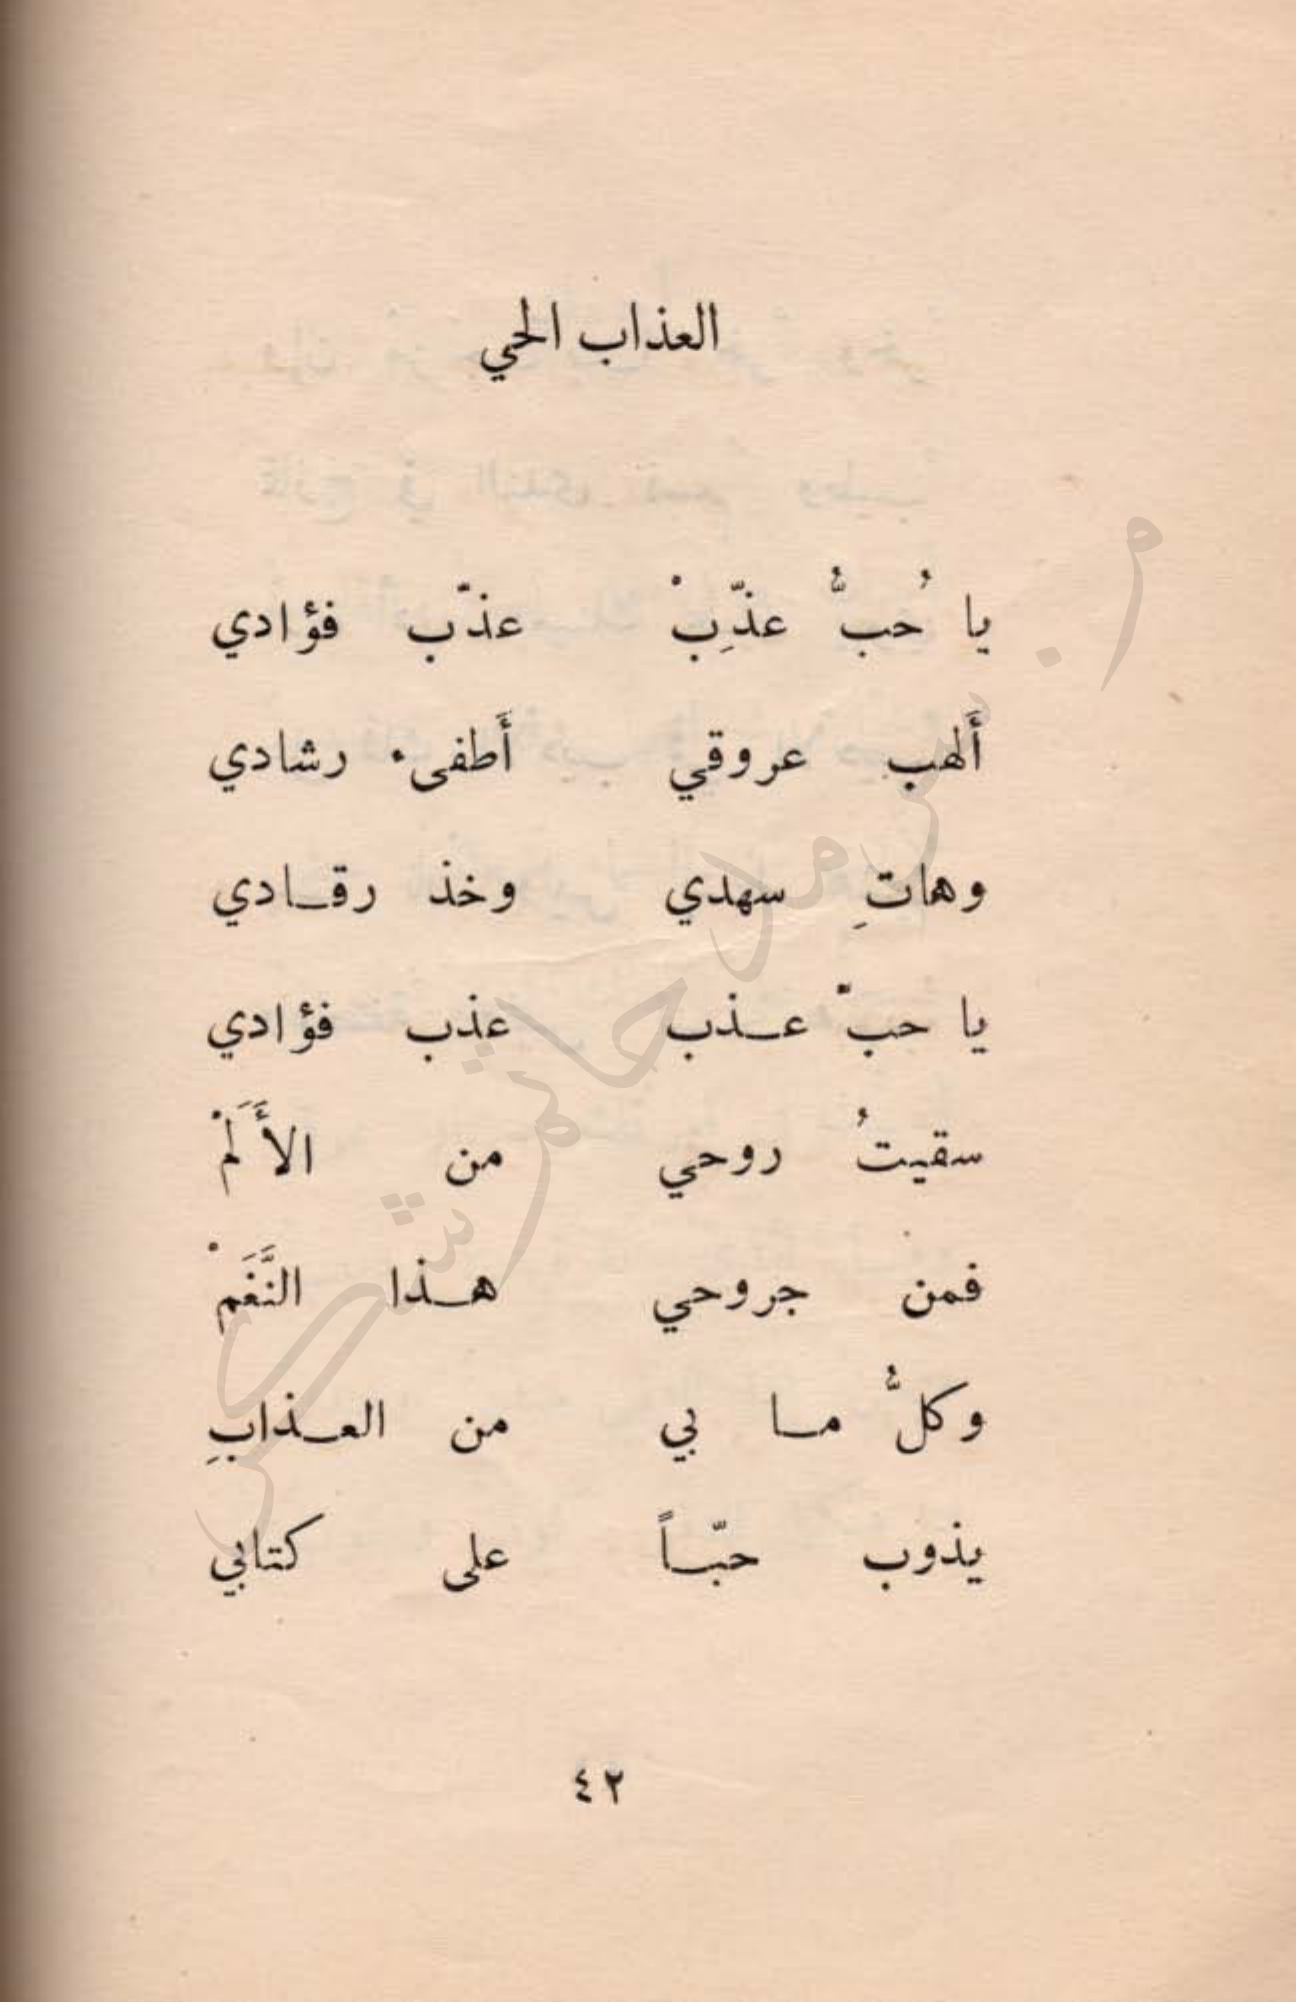 العذاب الحي
يا حُبُّ عذِّبْ عذّب فؤادي
أَلهب عروقي أَطفىء رشادي
وهاتِ سهدي وخذ رقـادي
يا حبّ عـذب عذب فؤادي
سقيتُ روحي من الأَلَمْ
فمن جروحي هـذا النَّغَمْ
وكلُّ مـا بي من العـذابِ
يذوب حبّـاً على كتابي
٤٢
م. سرمد حاتم شكر